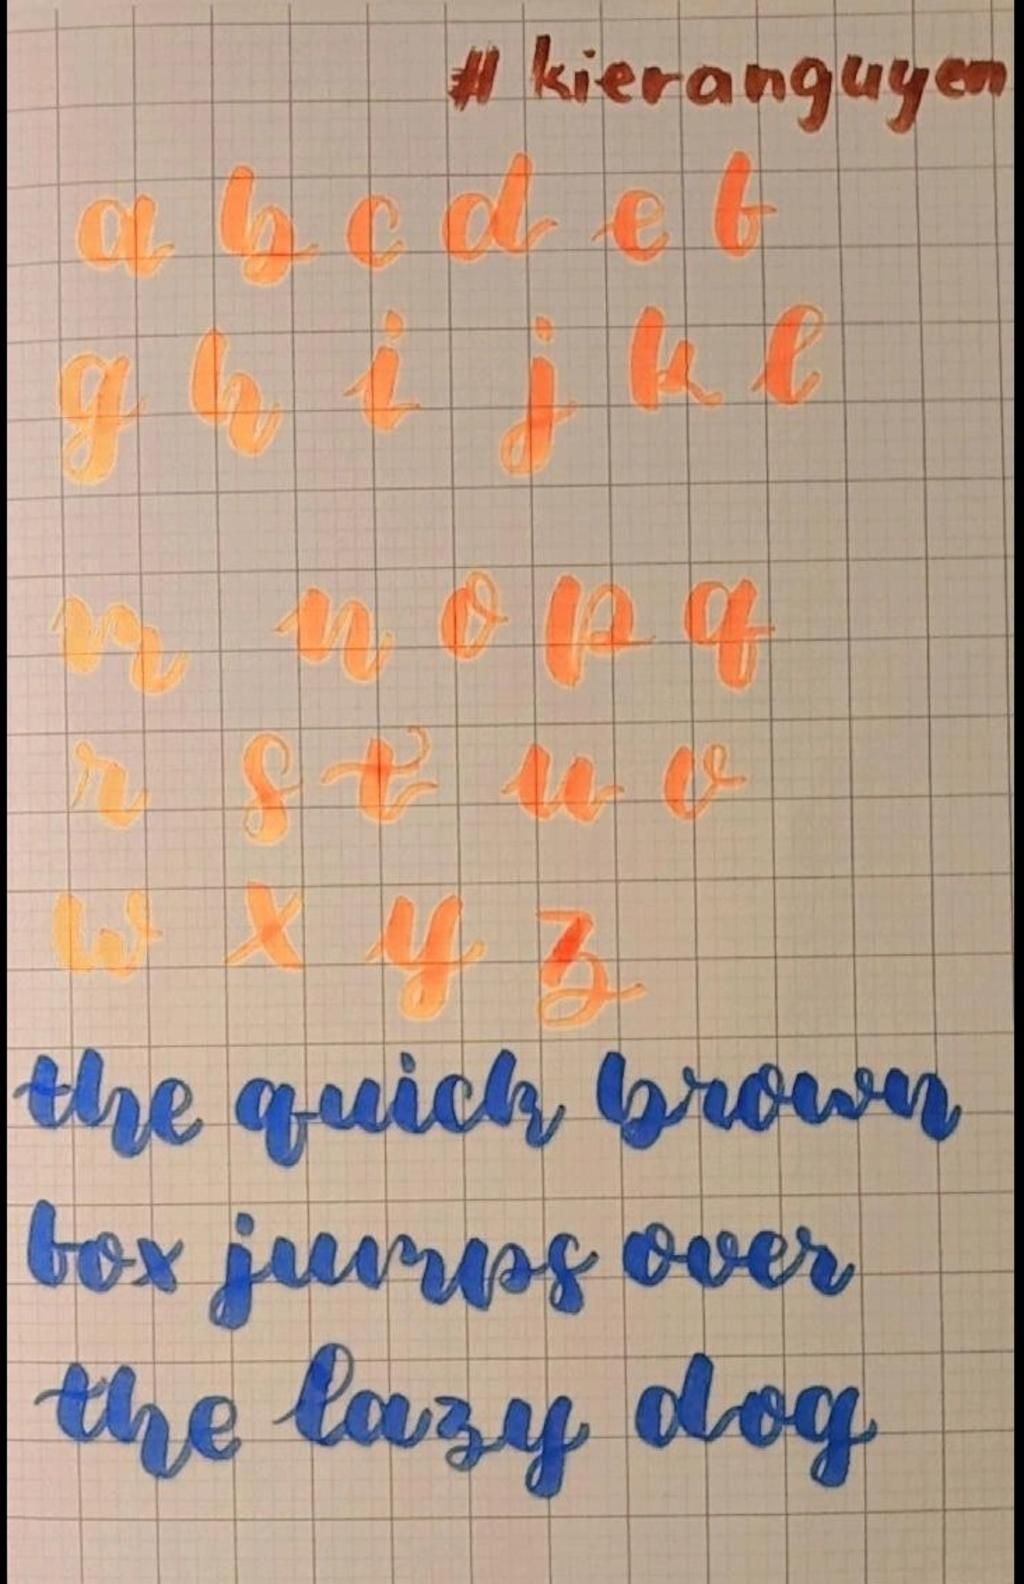 # kieranguyen
a b c d e f
g h i j k l
m n o p q
r s t u v
w x y z
the quick brown
fox jumps over
the lazy dog